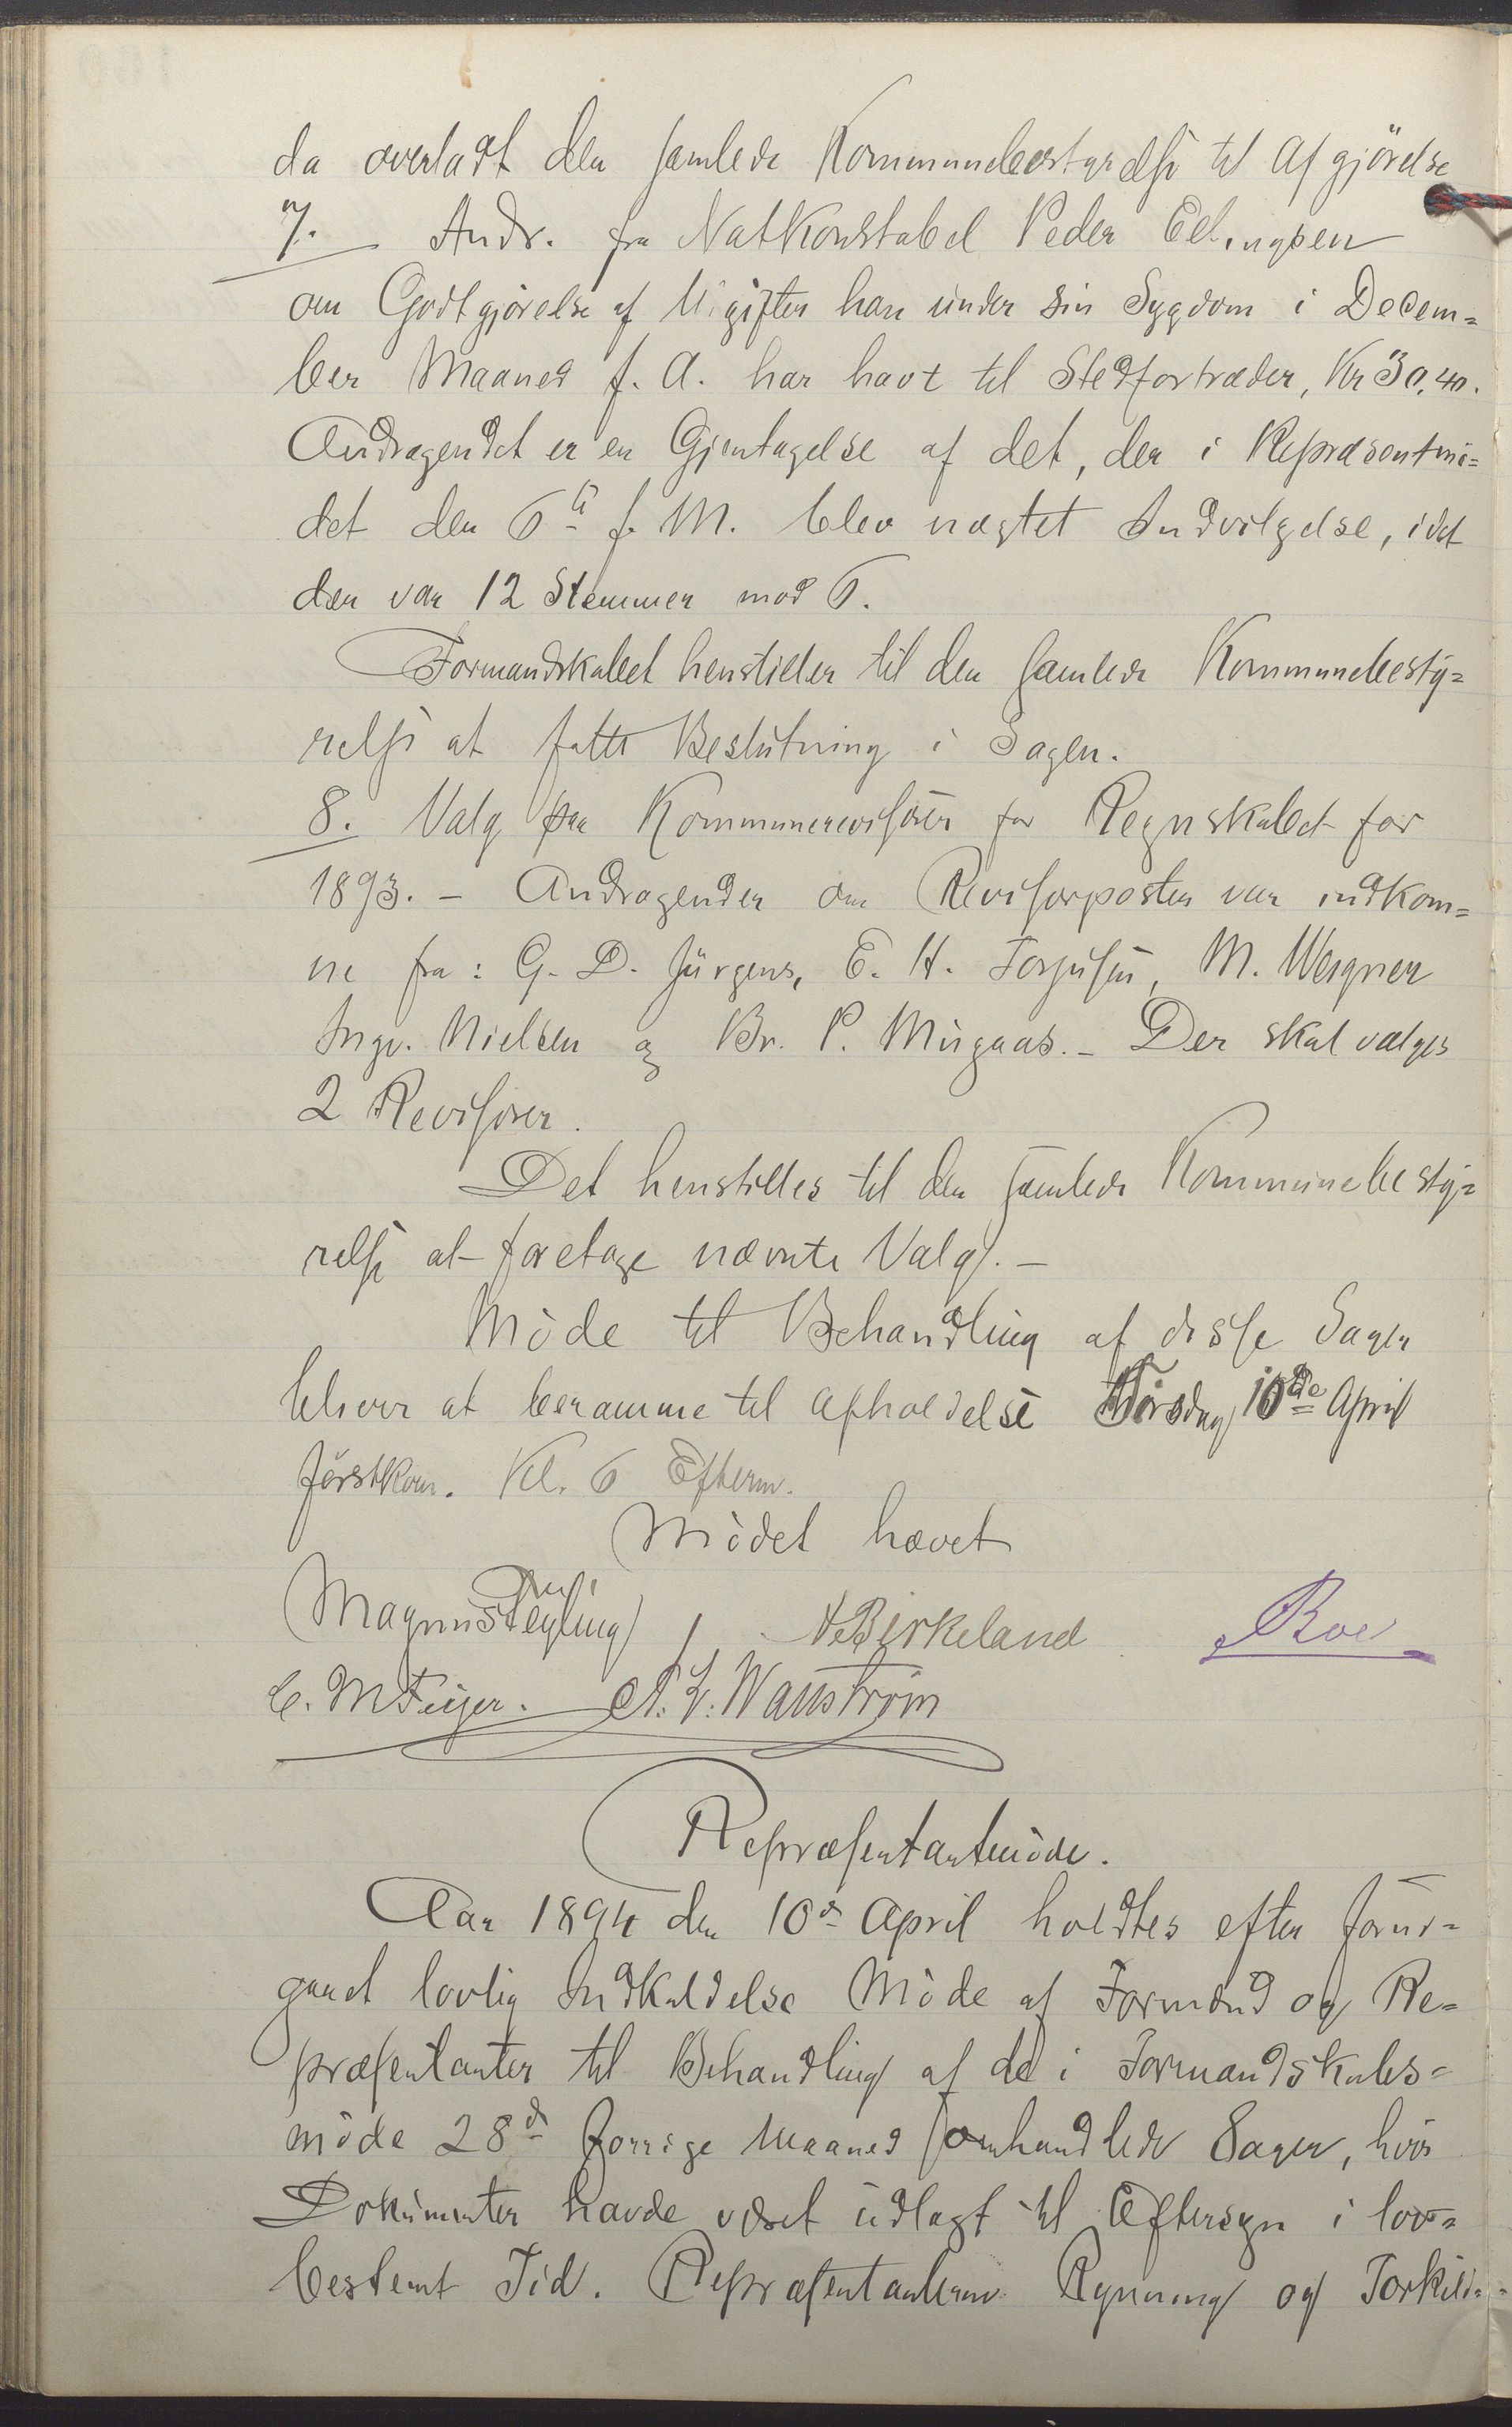 da overladt den samlede Kommunebestyrelse til Afgjörelse
7. Andr. fra Natkonstabel Peder Ellingsen
om Godtgjörelse af Udgifter han under sin Sygdom i Decem=
ber Maaned f. A. har havt til Stedfortræder, Kr 30,40.
Andragendet er en Gjentagelse af det, der i Repræsentmö=
det den 6te f. M. blev nægtet Indvilgelse, idet
der var 12 Stemmer mod 6.
Formandskabet henstiller til den samlede Kommunebesty=
relse at fatte Beslutning i Sagen.
8. Valg paa Kommunerevisorer for Regnskabet for
1893. - Andragender om Revisorposten var indkom=
ne fra: G. D. Jürgens, E. H. Torjusen, M. Wegner
Ingv. Nielsen og Br. P. Musgaas. - Der skal vælges
2 Revisorer.
Det henstilles til den samlede Kommunebesty=
relse at foretage nævnte Valg. -
Möde til Behandling af disse Sager
bliver at beramme til Afholdelse Tirsdag 10de April
förstkom. Kl. 6 Efterm.
Mödet hævet
Magnus Meyling A Birkeland Roe
C. M. Feyer. A. L. Wattström
Repræsentantmöde.
Aar 1894 den 10de April holdtes efter forud=
gaaet lovlig Indkaldelse Möde af Formænd og Re=
præsentanter til Behandling af de i Formandskabs=
möde 28de forrige Maaned omhandlede Sager, hvis
Dokumenter havde været udlagt til Eftersyn i lov=
bestemt Tid. Repræsentanterne Rynning og Torkild=